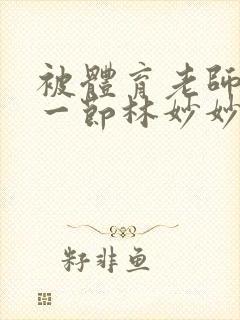 被體育老師
一節林妙妙
籽非鱼